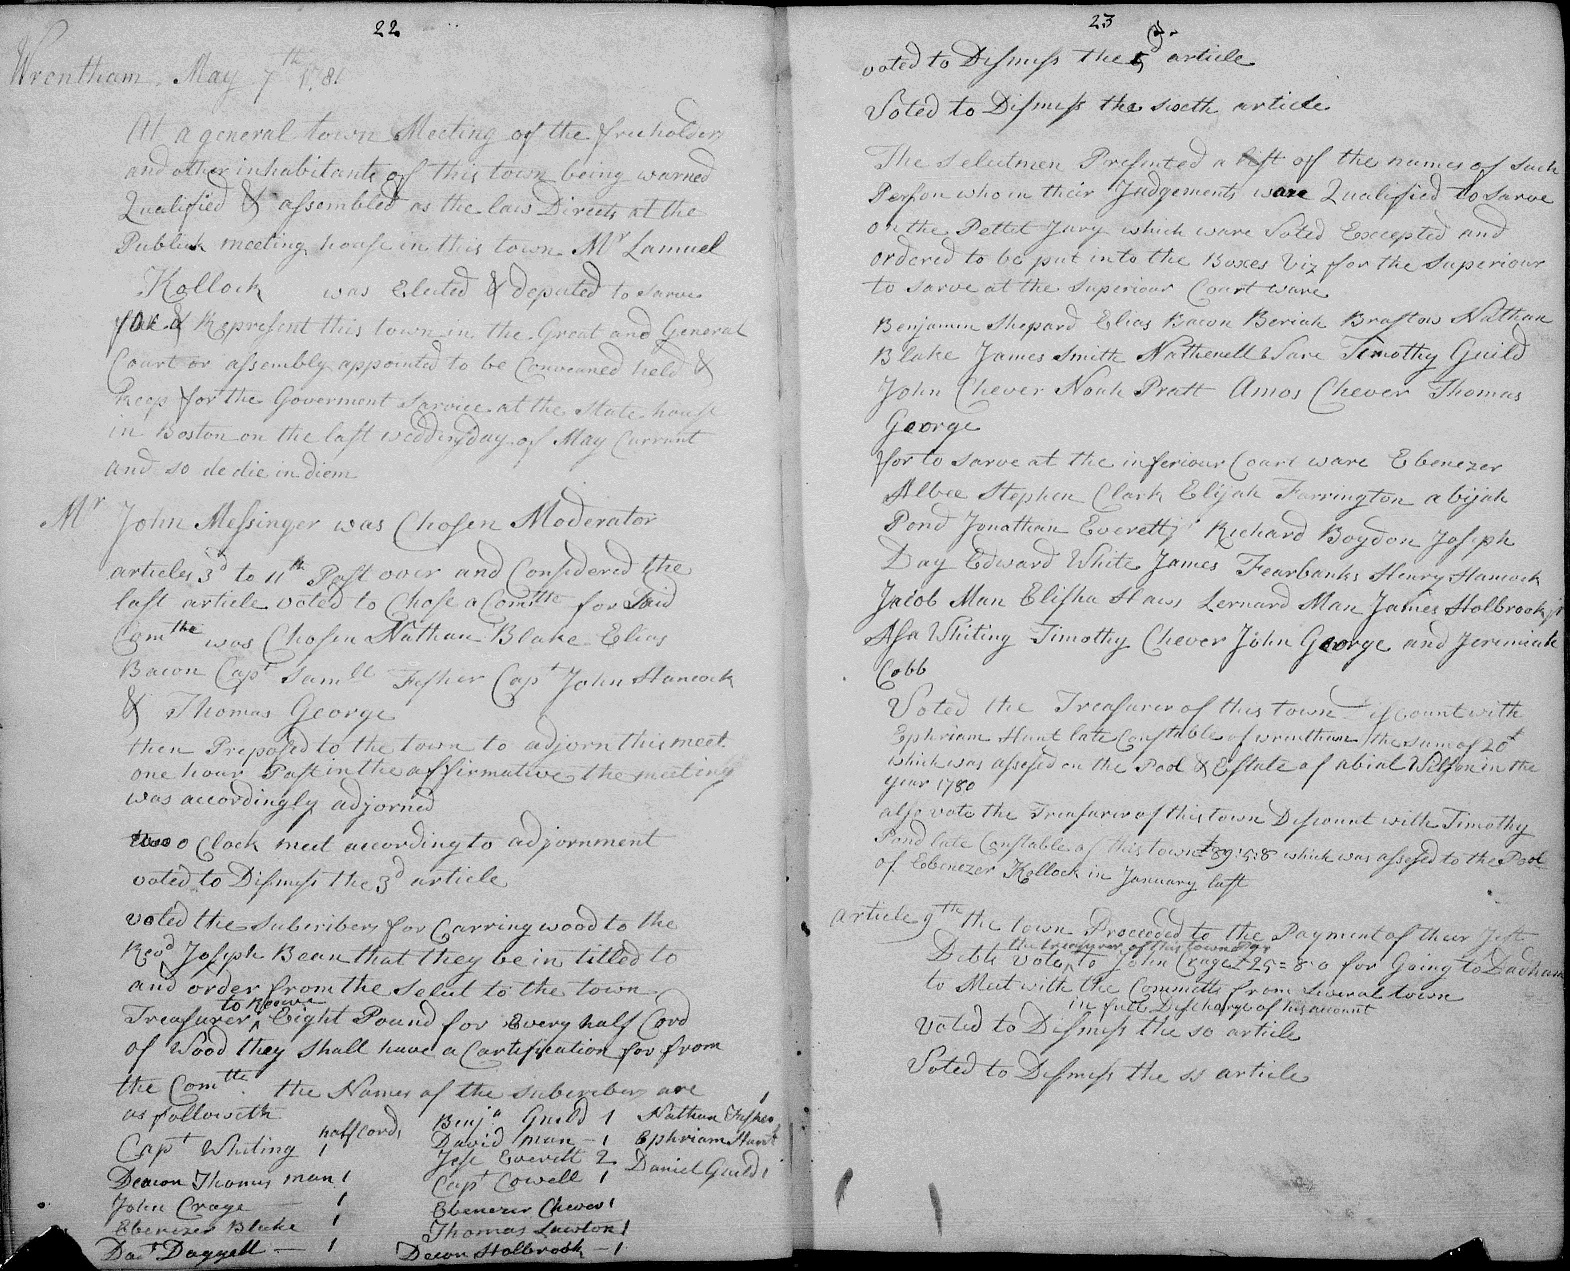 22
Wrentham, May 7th 1781
At a general town Meeting of the freeholders
and other inhabitants of this town being warned
Qualified & assembled as the law Directs at the
Publick meeting house in this town Mr Lamuel
Kollock was Elected & deputed to sarve
for & Represent this town in the Great and General
Court or assembly appointed to be Conveaned held &
Keep for the Goverment Sarvice at the State house
in Boston on the last weddinsday of May Currant
and so de die in diem
Mr John Messinger was Chosen Moderator
articles 3d to 11th Past over and Considered the
last article voted to Chose a Comtte for Said
Comtthe was Chosen Nathan Blake Elias
Bacon Capt Samll Fisher Capt John Hancock
& Thomas George
then Proposed to the town to adjorn this meet
one hour Past in the affirmative the meeting
was accordingly adjorned
two o Clock meet according to adjornment
voted to Dismiss the 3d article
voted the Subscribers for Carring wood to the
Revd Joseph Bean that they be in titled to
and order from the Select to the town
Treasurer to Receive Eight Pound for Every half Cord
of Wood they Shall have a Cartification for from
the Comtte the Names of the subscribers are
as followeth
half Cords Benja Guild 1 Nathan Fisher 1
Capt Whiting 1 David man - 1 Ephriam Hunt
Jese Everett 2 Daniel Guild 1
Deacon Thomas man 1 Capt Cowell 1
John Crage 1 Ebenezer Chever 1
Ebenezer Blake 1 Thomas Lawton 1
Daggett - 1 Decon Holbrook - 1
23
voted to Dismiss the 5 article
Voted to Dismiss the sixth article
The Selectmen Presented a list of the names of Such
Person who in their Judgements ware Qualified to Sarve
on the Pettet Jury which ware Voted Excepted and
ordered to be put into the Boxes Viz for the Superiour
to Sarve at the Superiour Court ware
Benjamin Shepard Elias Bacon Beriah Brastow Nathan
Blake James Smith Nathenell Ware Timothy Guild
John Chever Noah Pratt Amos Chever Thomas
George
for to Sarve at the inferiour Court ware Ebenezer
Albee Stephen Clark Elijah Farrington abijah
Pond Jonathan Everett jr Richard Boydon Joseph
Day Edward White James Fearbanks Henry Hancock
Jacob Man Elisha Haws Lernard Man James Holbrook jr
Asa Whiting Timothy Chever John George and Jeremiah
Cobb
Voted the Treasurer of this town Discount with
Ephriam Hunt late Constable of wrentham the Sum of 20£
which was assesed on the Pool & Estate of abial Wilson in the
year 1780
also vote the Treasurer of this town Discount with Timothy
Pond late Constable of this town £89:5:8 which was assesed to the Pool
of Ebenezer Kollock in January last
article 9th the town Proceeded to the Payment of their Just
Debts voted the treasurer of this town Pay to John Crage £25=8=0 for Going to Dadham
to Meet with the Committe from Several town
in full Discharge of his account
Voted to Dismiss the 10 article
Voted to Dismiss the 11 article